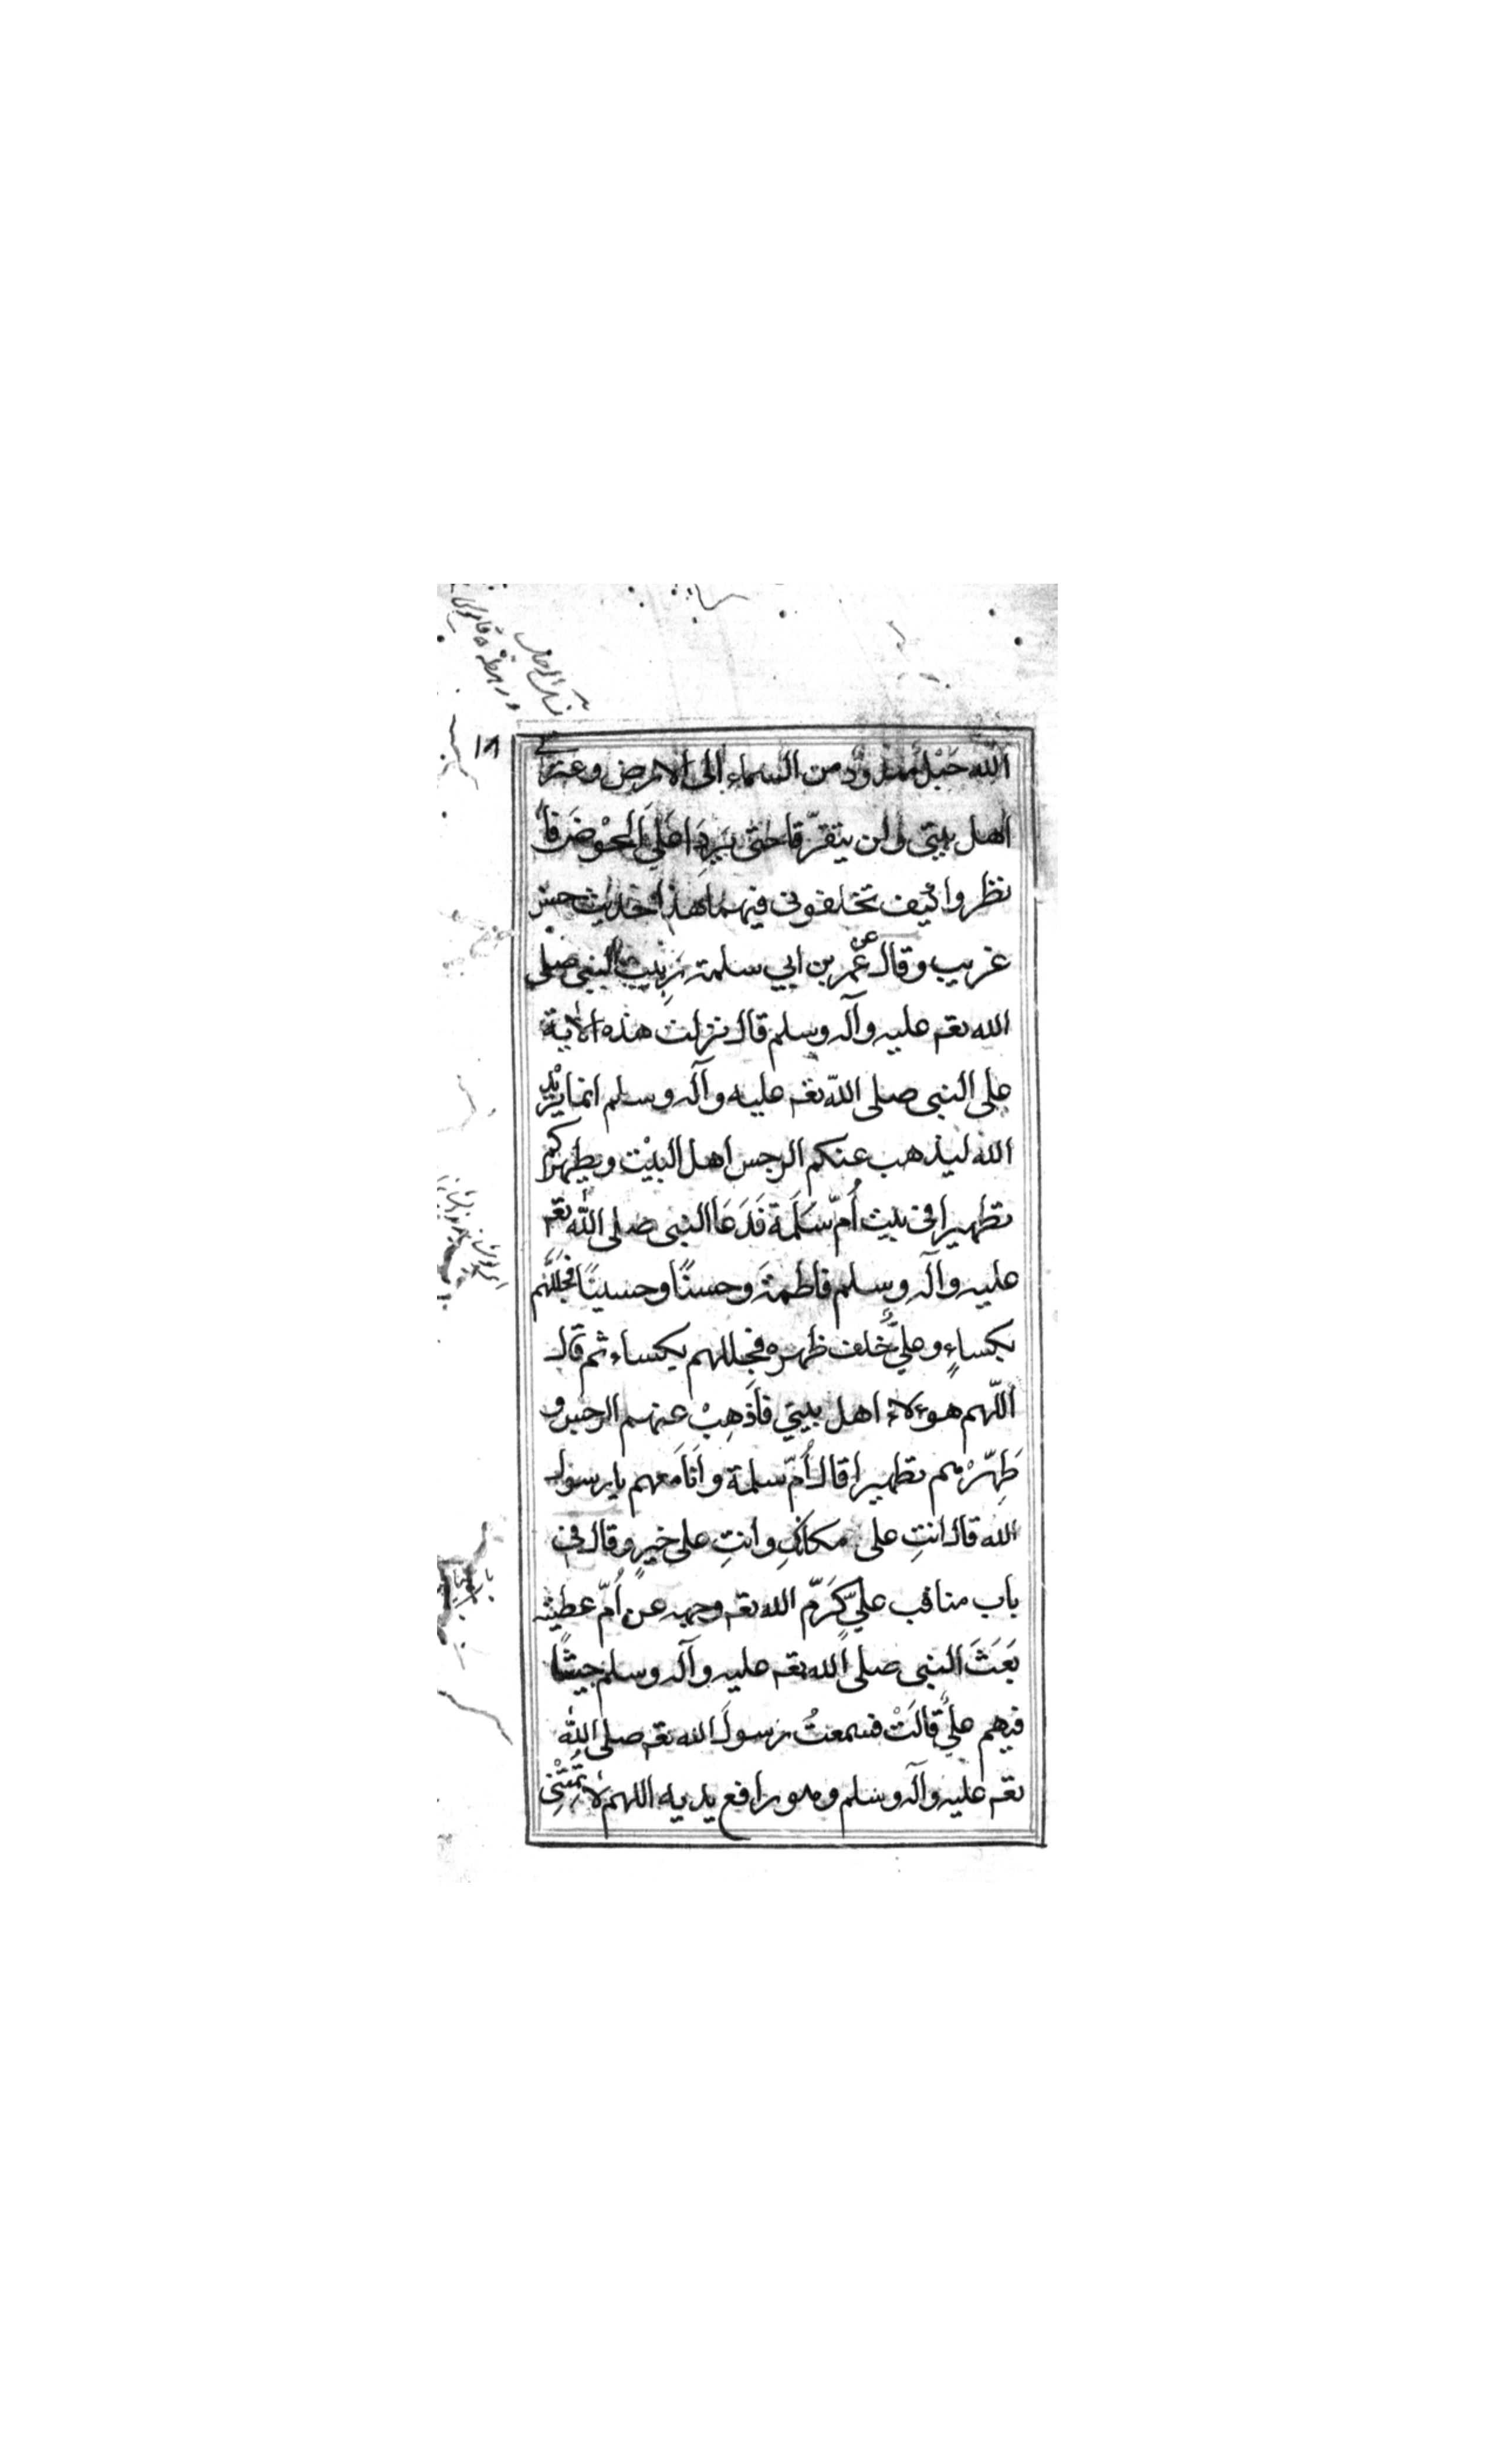 ١٨
الله حَبْل ممدود من السماء الى الارض وعترتي
اهل بيتي ولن يتفرّقا حتى يَرِدَا عَلَيَّ الحَوْضَ فا
نظروا كيف تخلفونى فيهما هذا حديث حسن
غريب وقال عن عُمر بن ابي سلمة رَبِيبِ النبي صلى
الله تعـ عليه وآله وسلم قال نزلت هذه الآية
على النبى صلى الله تعـ عليه وآله وسلم انما يريد
الله ليذهب عنكم الرجس اهل البيْت ويطهركم
تطهيرا فى بيت أُمّ سَلَمَة فَدَعَا النبى صلى الله تعـ
عليه وآله وسلم فاطمةَ وحسنًا وحسينًا فجَلَّلَهُم
بكساءٍ وعليٌّ خلف ظهره فجللهم بكساء ثم قال
اللّهم هوءلاء اهل بيتي فَأَذْهِبْ عنهم الرجس و
طَهِّرْهم تطهيرا قال أُمّ سلمة وانَا معهم يا رسول
الله قال انتِ على مكانكِ وانتِ على خيرٍ وقال فى
باب مناقب عليٍّ كَرَّمَ الله تعـ وجهه عن أُمّ عطيّة
بَعَثَ النبى صلى الله تعـ عليه وآله وسلم جيشًا
فيهم عليٌّ قالَتْ فسمعتُ رسولَ الله تعـ صلى الله
تعـ عليه وآله وسلم وهو رافع يديه اللهم لا تُمِتْنِي